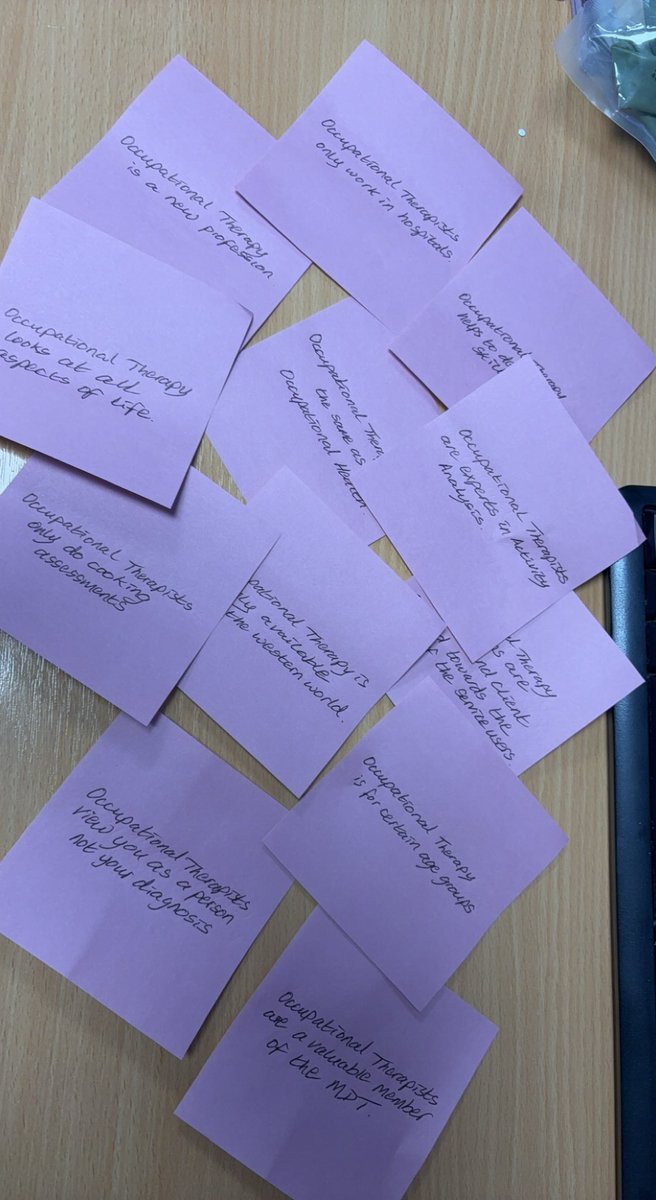 Occupational Therapy
is a new profession
Occupational Therapists
only work in hospitals
Occupational Therapy
looks at all
aspects of life.
Occupational Therapy
helps to
Occupational
the same as
Occupational
Occupational Therapists
are experts in Activity
Analysis
Occupational Therapists
only do cooking
assessments
Therapy is
available
the western world.
Therapy
are
and client
towards the
the service users.
Occupational Therapy
is for certain age groups
Occupational Therapists
view you as a person
not your diagnosis
Occupational Therapists
are a valuable member
of the MDT.